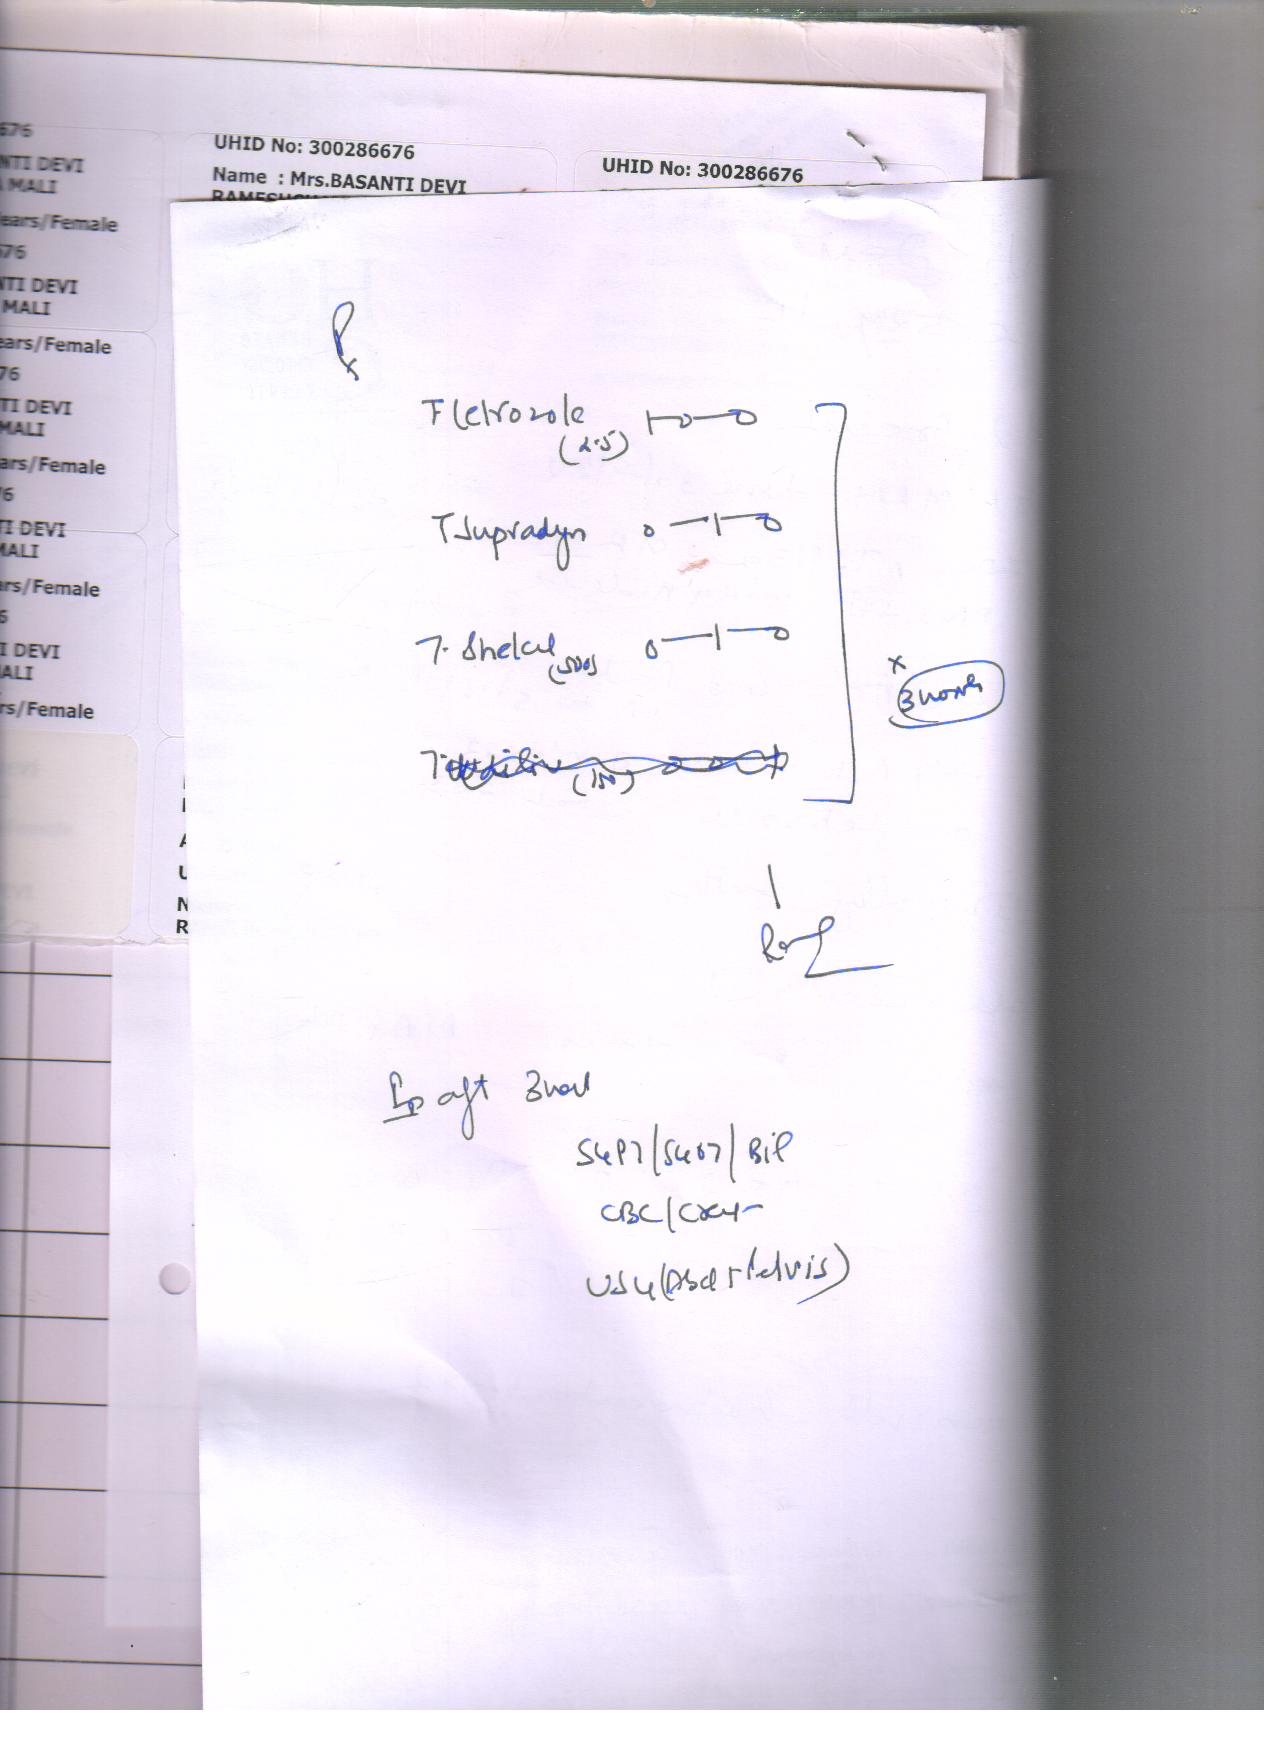 676
NTI DEVI
A MALI
ears/Female
676
NTI DEVI
MALI
ears/Female
76
TI DEVI
MALI
ars/Female
76
TI DEVI
MALI
ars/Female
6
I DEVI
ALI
rs/Female
UHID No: 300286676
Name : Mrs.BASANTI DEVI
UHID No: 300286676
A
U
N
R
Rx
T Letrozole 1-0-0
(2.5)
T Supradyn 0-1-0
T. Shelcal (500) 0-1-0
(150)
x
3 mont
aft 3 mon
SGPT/SGOT/Bil
CBC/CXR
USG (Abd + Pelvis)